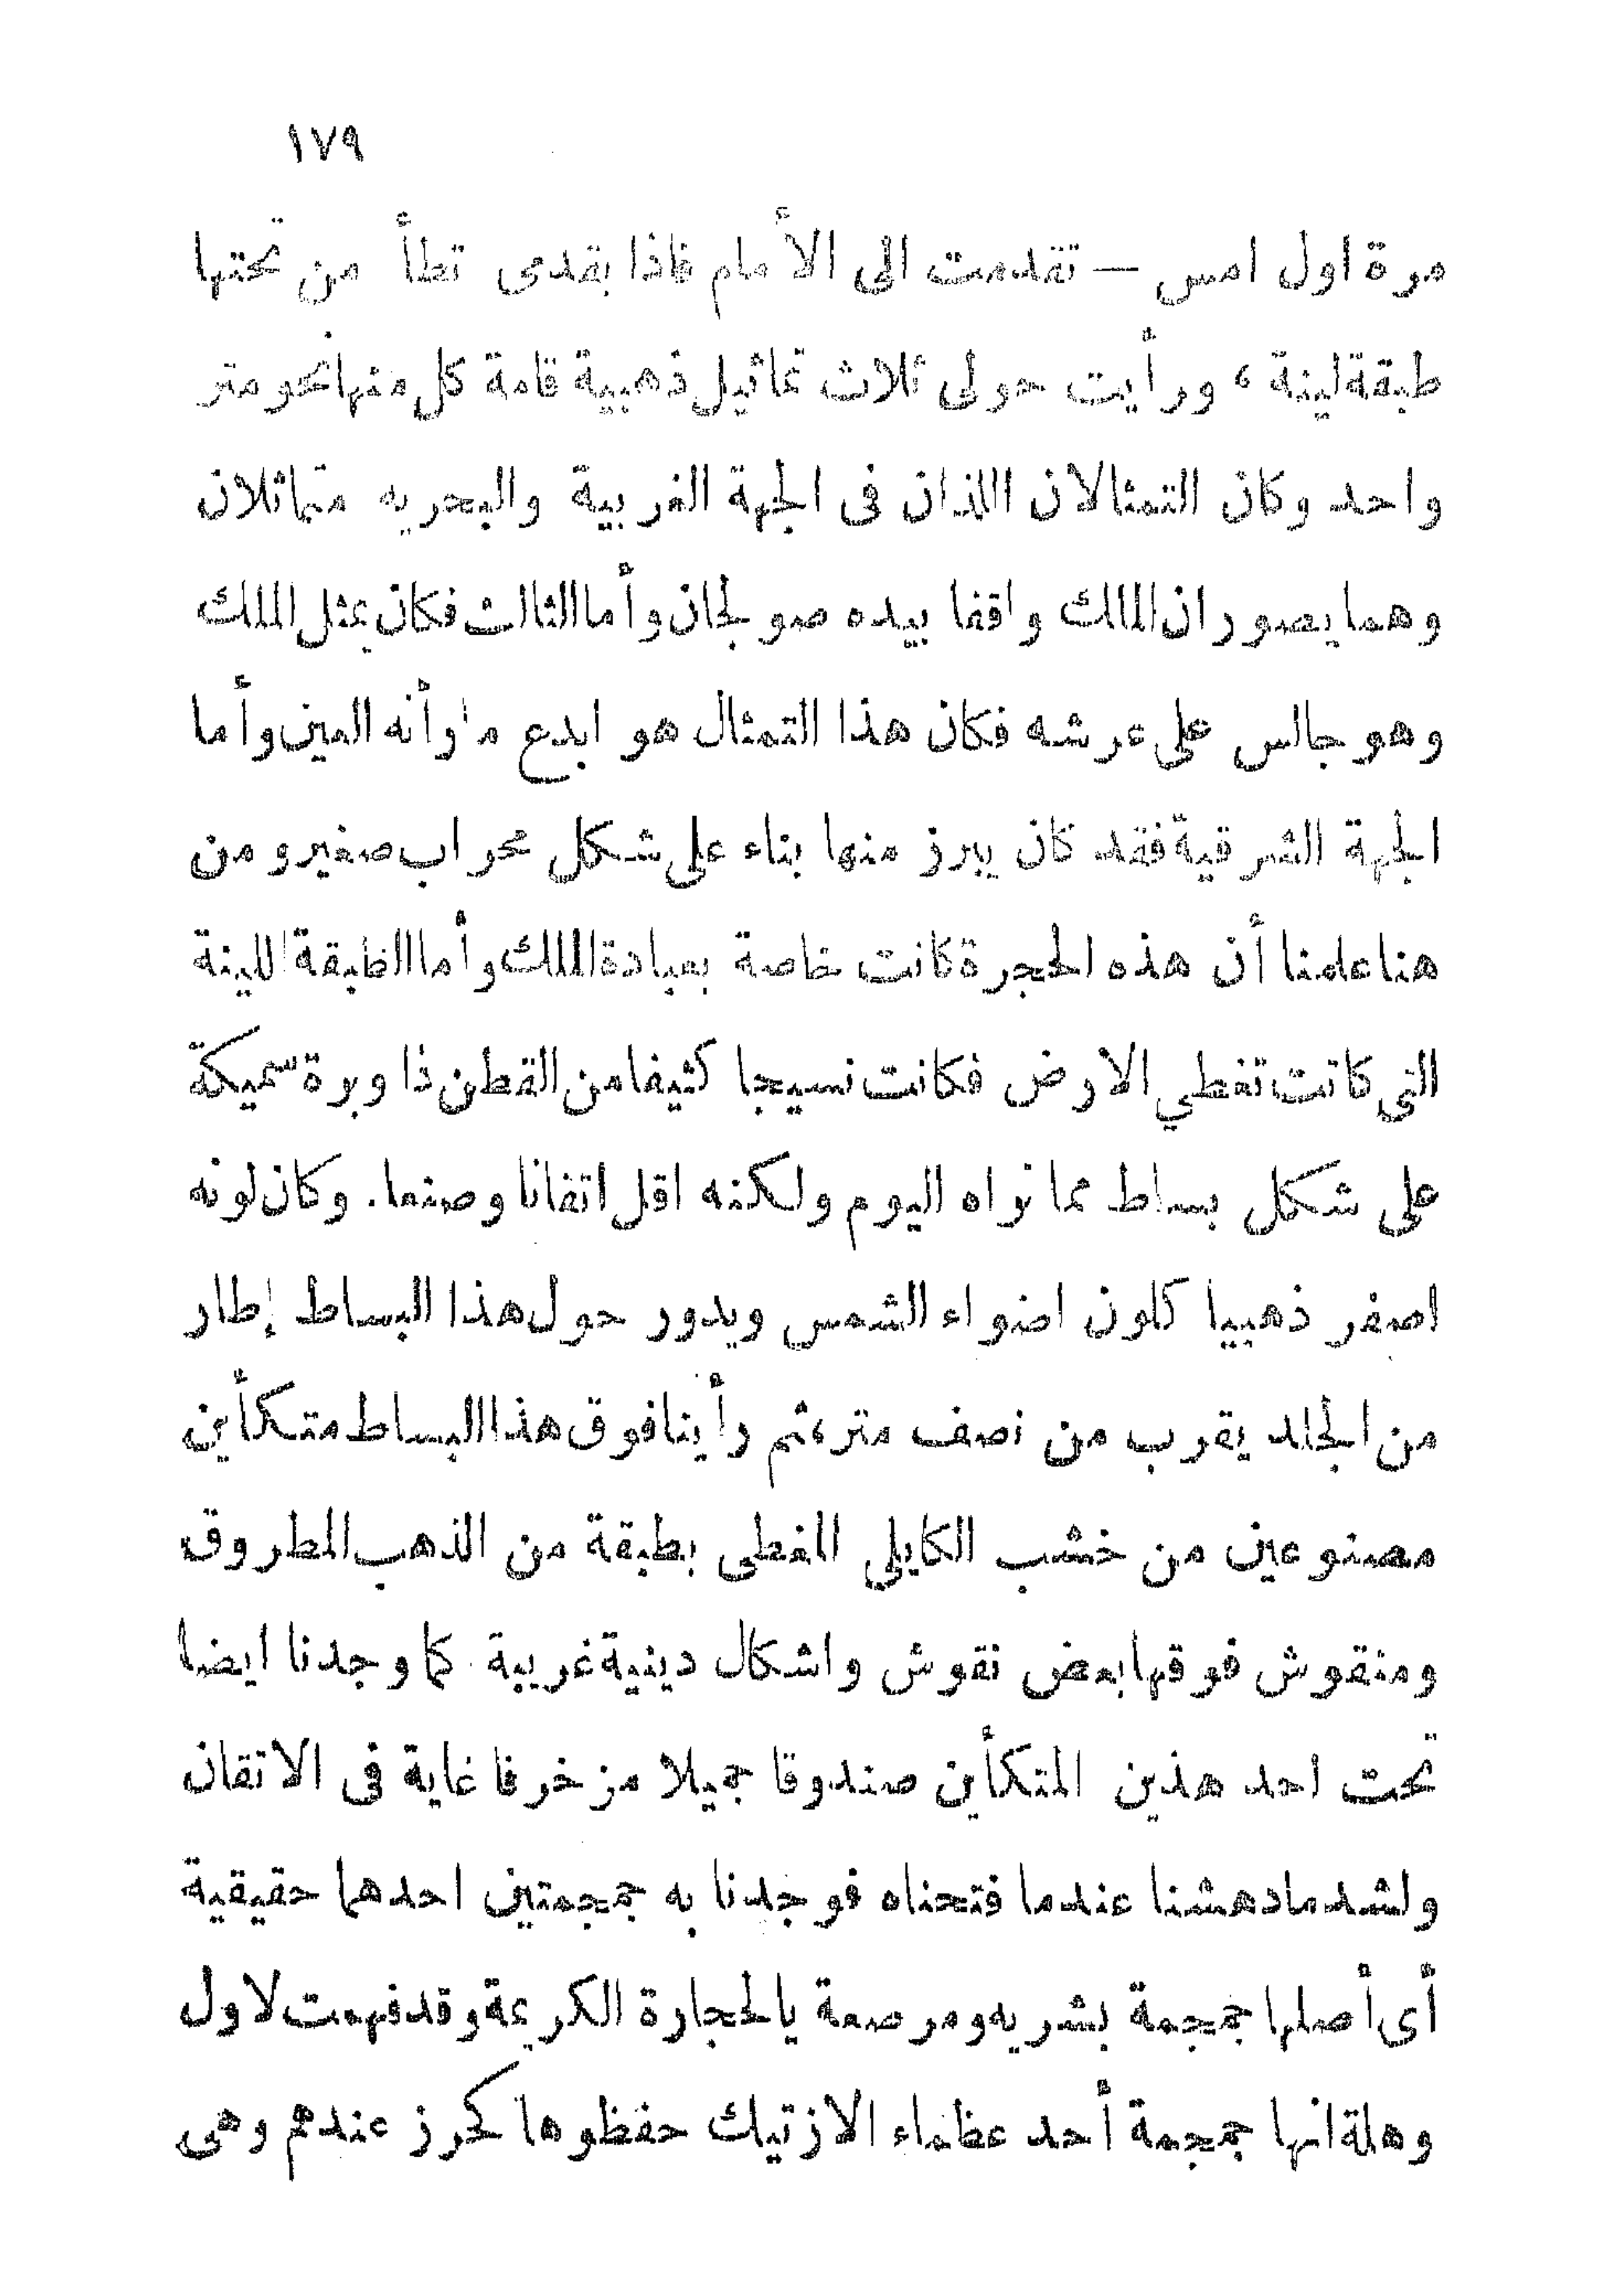 ١٧٩
مرة اول امس — تقدمت الى الأمام فاذا بقدمى تطأ من تحتها
طبقة لينة ، ورأيت حولى ثلاث تماثيل ذهبية قامة كل منها نحو متر
واحد وكان التمثالان اللذان فى الجهة الغربية والبحريه متماثلان
وهما يصوران الملك واقفا بيده صولجان وأما الثالث فكان يمثل الملك
وهو جالس على عرشه فكان هذا التمثال هو ابدع ما رأته العين وأما
الجهة الشرقية فقد كان يبرز منها بناء على شكل محراب صغير ومن
هنا علمنا أن هذه الحجرة كانت خاصة بعبادة الملك وأما الطبقة اللينة
التى كانت تغطي الارض فكانت نسيجا كثيفا من القطن ذا وبرة سميكة
على شكل بساط مما نراه اليوم ولكنه اقل اتقانا وصنعا. وكان لونه
اصفر ذهبيا كلون اضواء الشمس ويدور حول هذا البساط إطار
من الجلد يقرب من نصف متر، ثم رأينا فوق هذا البساط متكأين
مصنوعين من خشب الكايلى المغطى بطبقة من الذهب المطروق
ومنقوش فوقها بعض نقوش واشكال دينية غريبة كما وجدنا ايضا
تحت احد هذين المتكأين صندوقا جميلا مزخرفا غاية فى الاتقان
ولشد ما دهشنا عندما فتحناه فوجدنا به جمجمتين احدهما حقيقية
أى أصلها جمجمة بشريه ومرصعة بالحجارة الكريمة وقد فهمت لاول
وهلة انها جمجمة أحد عظماء الازتيك حفظوها كحرز عندهم وهى